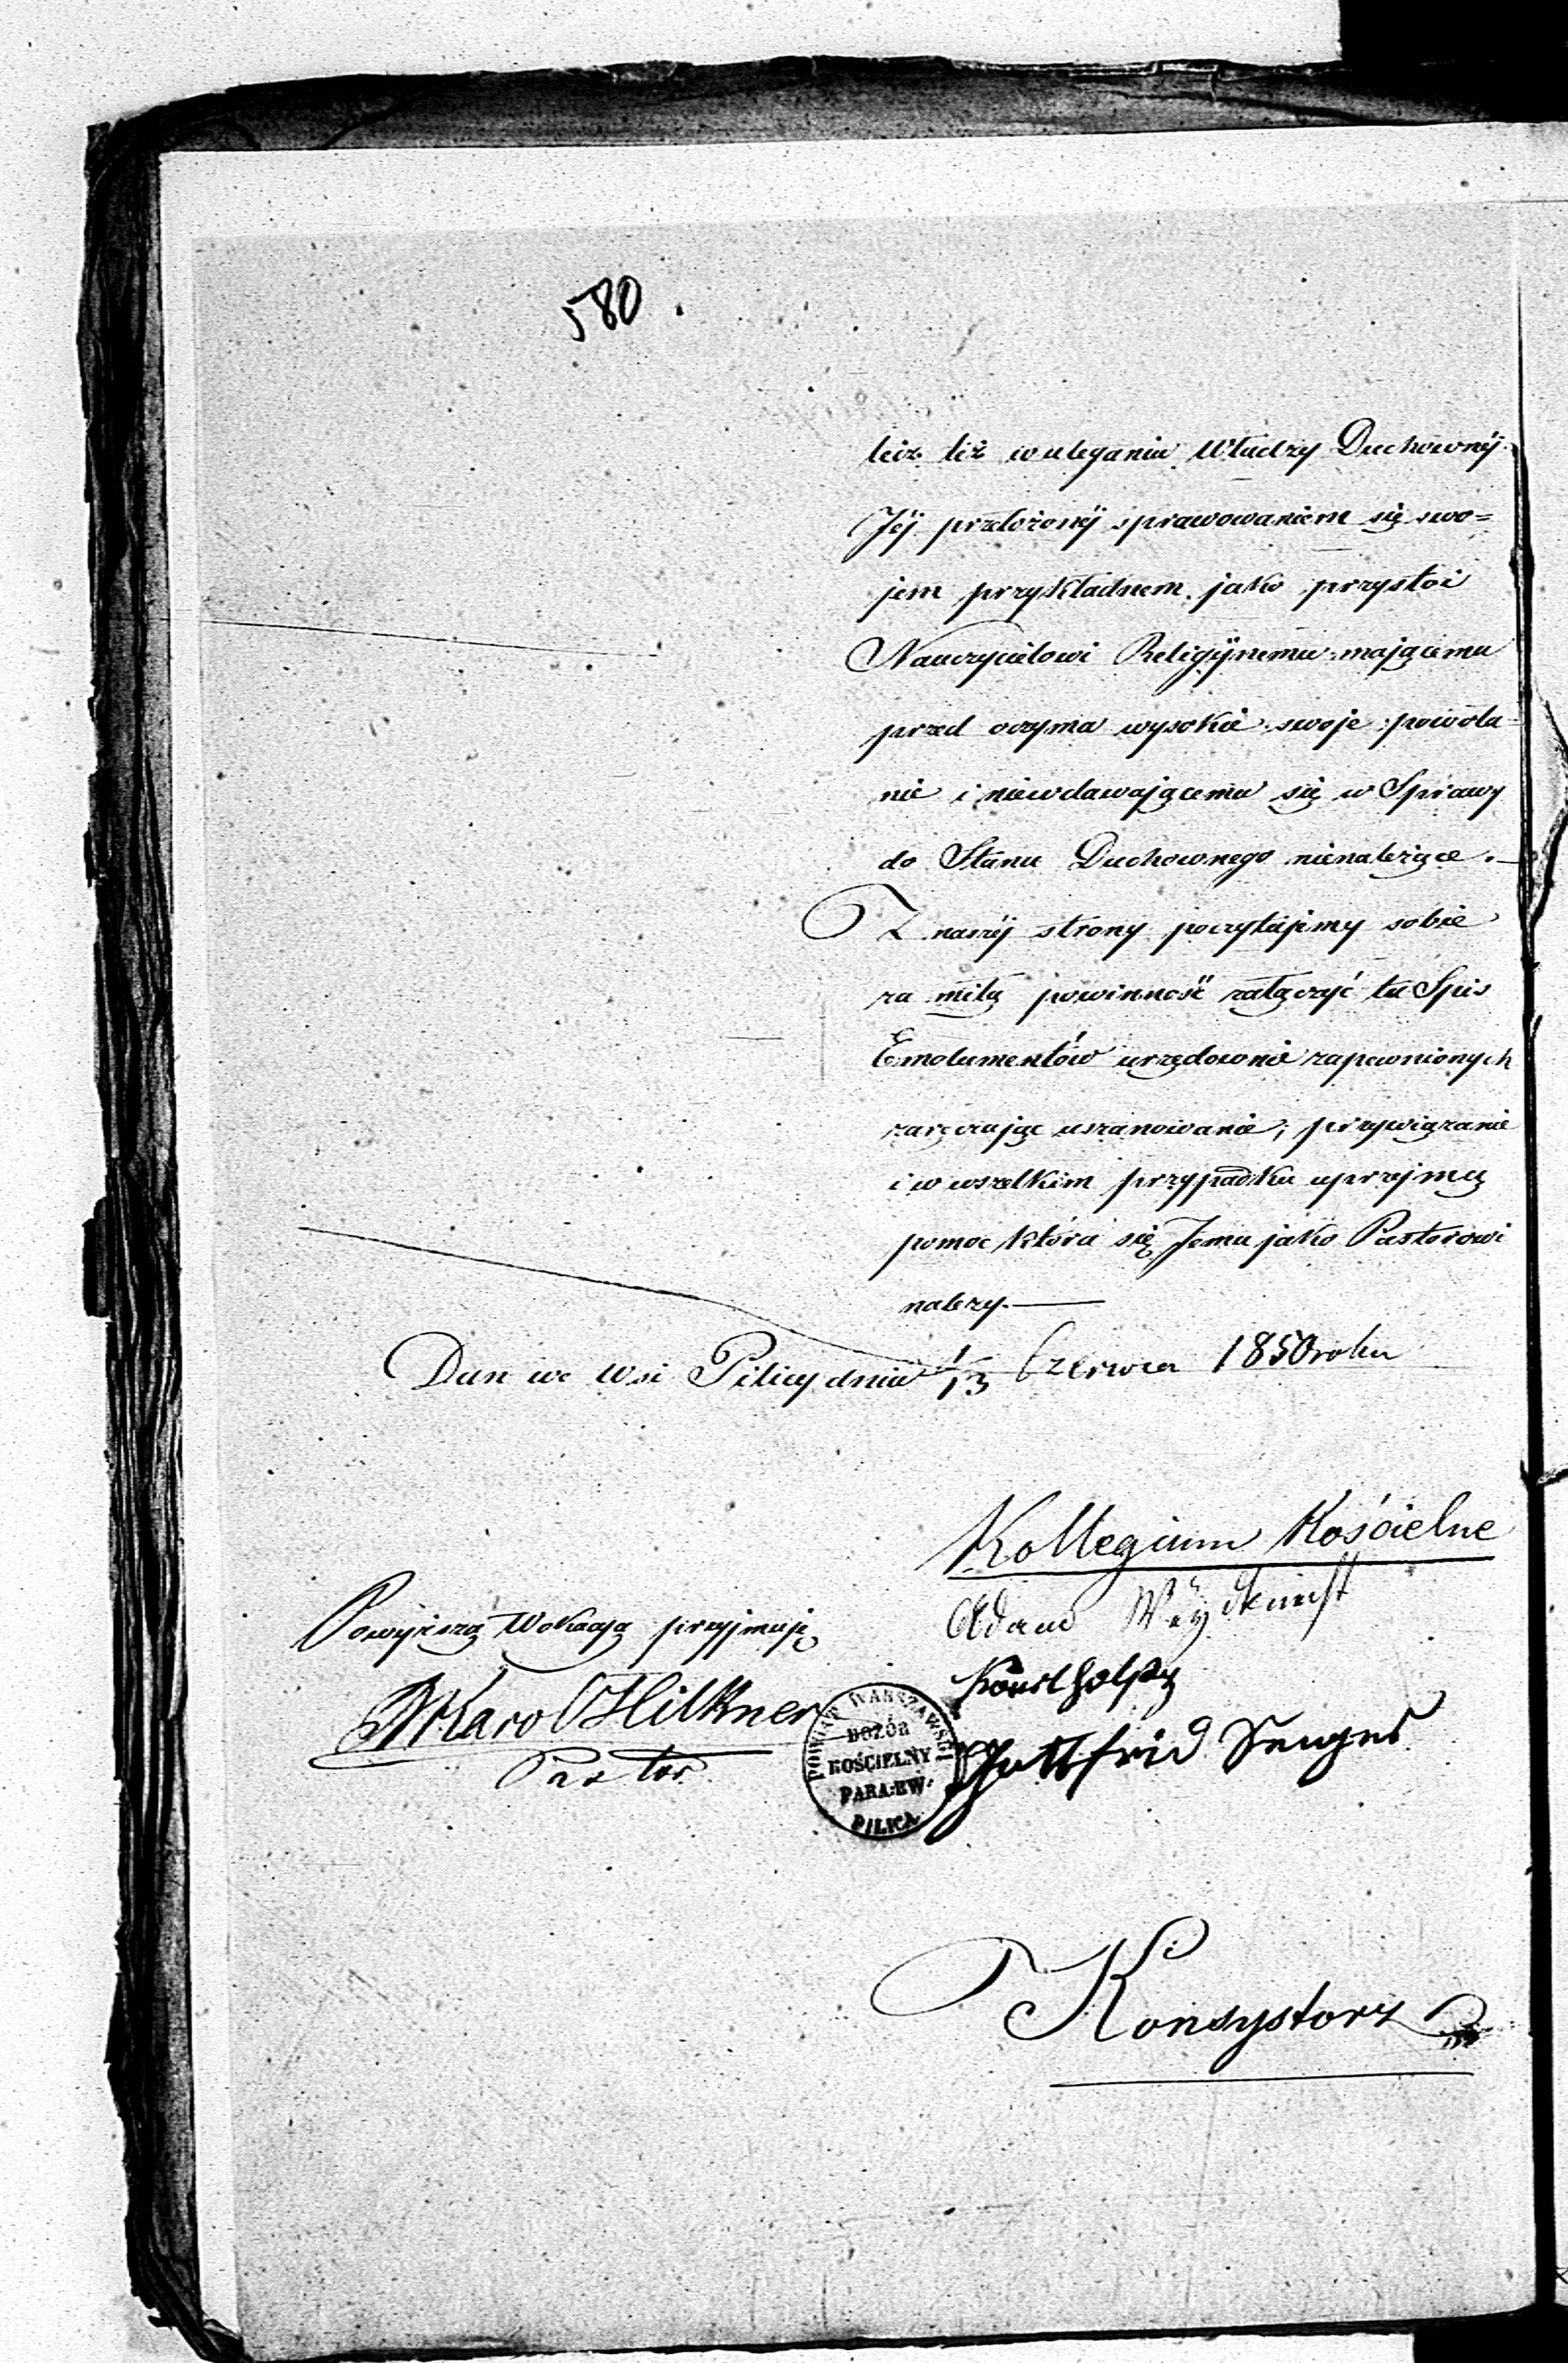 580.
lecz też w uleganiu Władzy Duchownéj
Jéj przełożonéj sprawowaniem się swo=
jem przykładnem, jako przystoi
Nauczycielowi Religijnemu mającemu
przed oczyma wysokie swoje powoła-
nie i niewdawającemu się w Sprawy
do Stanu Duchownego nienależące.
Z naszéj strony poczytujemy sobie
za miłą powinność załączyć tu Spis
Emolumentów urzędownie zapewnionych
zaręczając uszanowanie, przywiązanie
i w wszelkim przypadku uprzejmą
pomoc która się Jemu jako Pastorowi
należy.—
Dan we Wsi Pilicy dnia 1/13 Czerwca 1850 roku
Kollegium Kościelne
Adam
Powyższą Wokacyą przyjmuję
Karol Hilkner
Pastor
Gottfrid
POWIAT WARSZAWSKI
DOZÓR
KOŚCIELNY
PARA: EW:
PILICA
Konsystorz